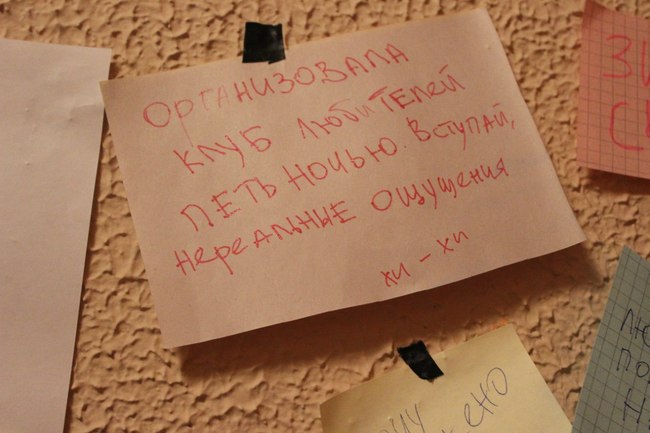 ОРГАНИЗОВАЛА
КЛУБ ЛЮБИТЕЛЕЙ
ПЕТЬ НОЧЬЮ. ВСТУПАЙ,
НЕРЕАЛЬНЫЕ ОЩУЩЕНИЯ
ХИ - ХИ